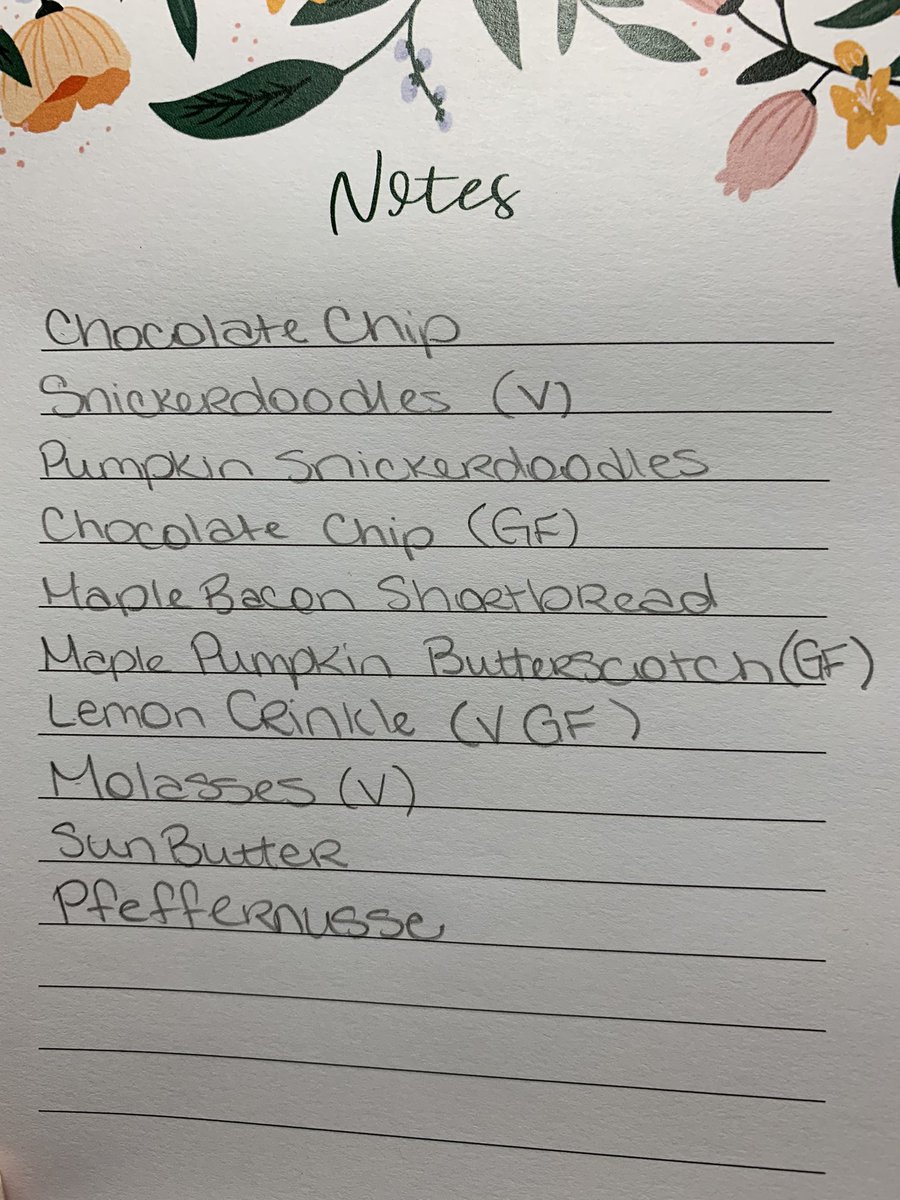 Notes
Chocolate Chip
Snickerdoodles (V)
Pumpkin Snickerdoodles
Chocolate Chip (GF)
Maple Bacon Shortbread
Maple Pumpkin Butterscotch (GF)
Lemon Crinkle (V GF)
Molasses (V)
SunButter
Pfeffernusse